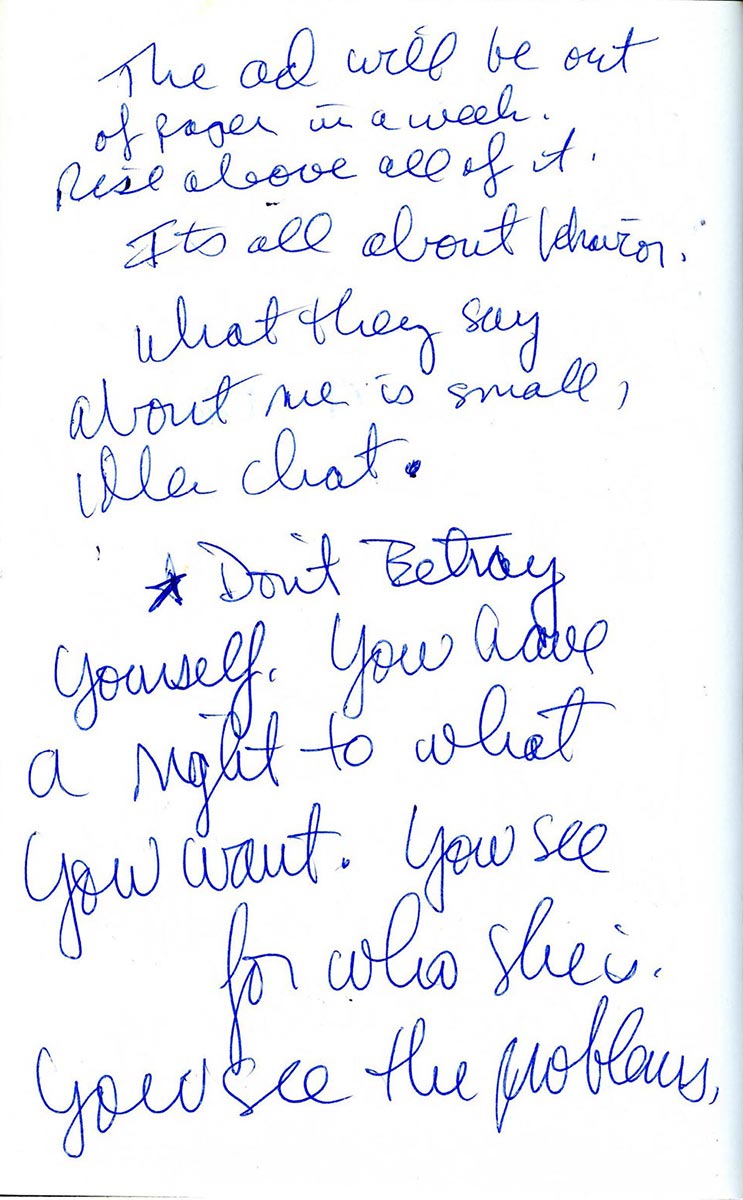 The ad will be out
of paper in a week.
Rise above all of it.
Its all about behavior.
What they say
about me is small,
idle chat.
★ Don't Betray
Yourself. You have
a right to what
You want. You see
for who she is.
You see the problems,